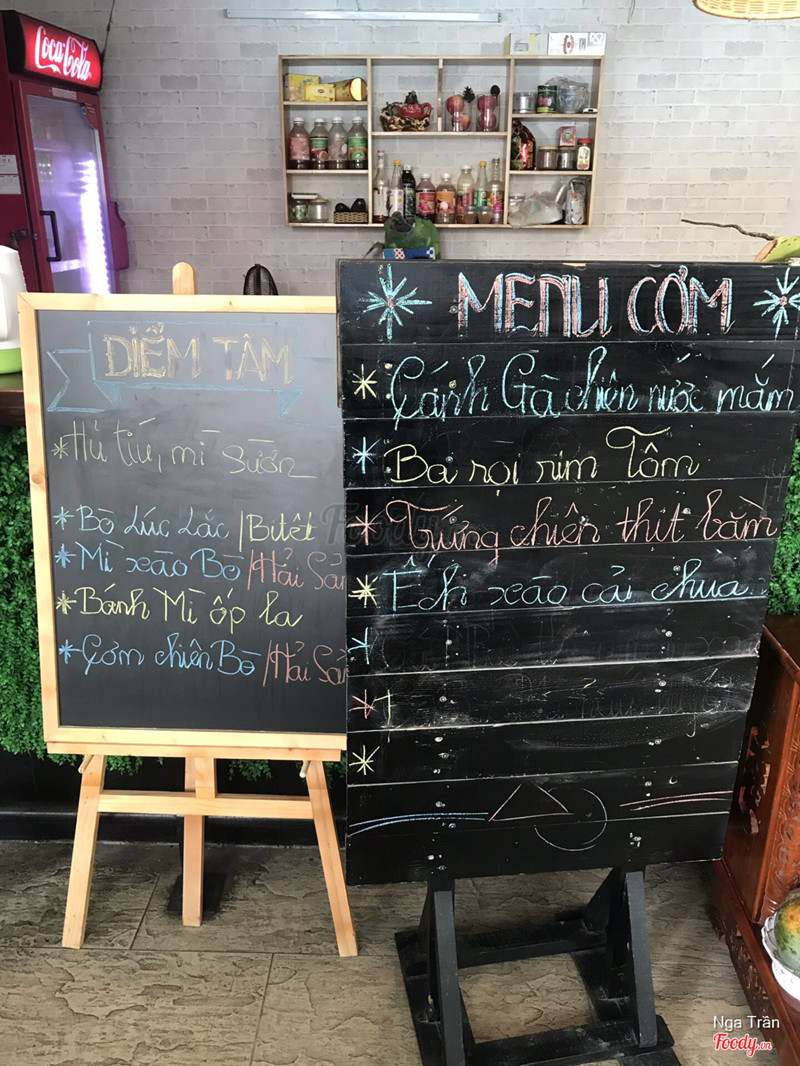 Coca-Cola
ĐIỂM TÂM
Hủ tíu, mì sườn
Bò Lúc Lắc /Bitêt
Mì xào Bò /Hải Sản
Bánh Mì ốp la
Cơm chiên Bò /Hải Sản
MENU CƠM
Cánh Gà chiên nước mắm
Ba rọi rim Tôm
Trứng chiên thịt bằm
Ếch xào cải chua
Nga Trần
Foody.vn